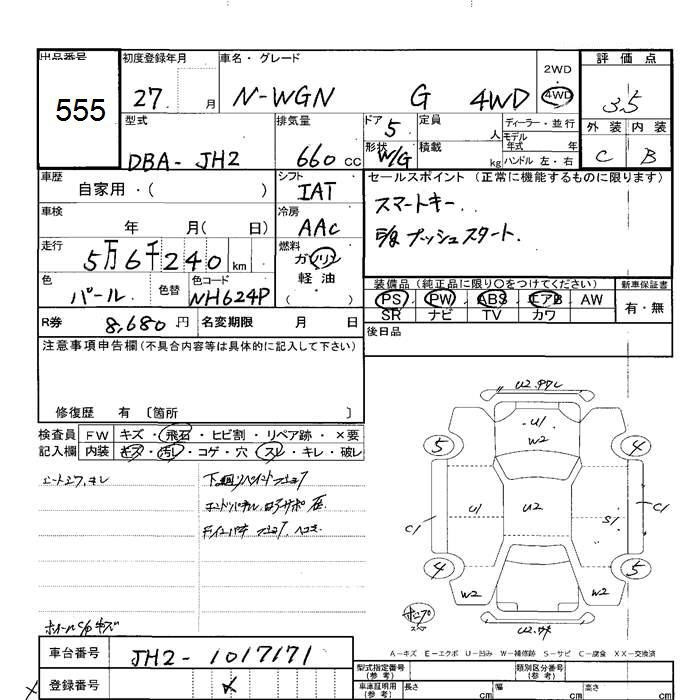 出品番号 初度登録年月 車名・グレード 2WD 評価点
555 27 月 N-WGN G 4WD 4WD 3.5
型式 排気量 ドア 5 定員 人 ディーラー・並行 外装 内装
DBA-JH2 660 cc 形状 W/G 積載 kg モデル年式 年式 ハンドル 左・右 C B
車歴 自家用・( ) シフト IAT セールスポイント (正常に機能するものに限ります)
車検 年 月( 日) 冷房 AAC スマートキー.
走行 5万6千240km 燃料 ガソリン 軽油 プッシュスタート.
色 パール 色替 色コード NH624P 装備品 (純正品に限り○をつけてください) 新車保証書
・( ) PS PW ABS エアB AW 有・無
R券 8,680円 名変期限 月 日 SR ナビ TV カワ
注意事項申告欄(不具合内容等は具体的に記入して下さい) 後日品
修復歴 有 〔箇所 〕
検査員 FW キズ・飛石・ヒビ割・リペア跡・×要
記入欄 内装 キズ・汚レ・コゲ・穴・スレ・キレ・破レ
U2
U1
W2
5
4
C1
U1
U2
S1
C1
4
5
W2
W2
U2
A-キズ E-エクボ U-凹み W-補修跡 S-サビ C-腐食 XX-交換済
車台番号 JH2-1017171
型式指定番号 (参考) 類別区分番号 (参考)
登録番号
車庫証明用 (参考) 長さ cm 幅 cm 高さ cm